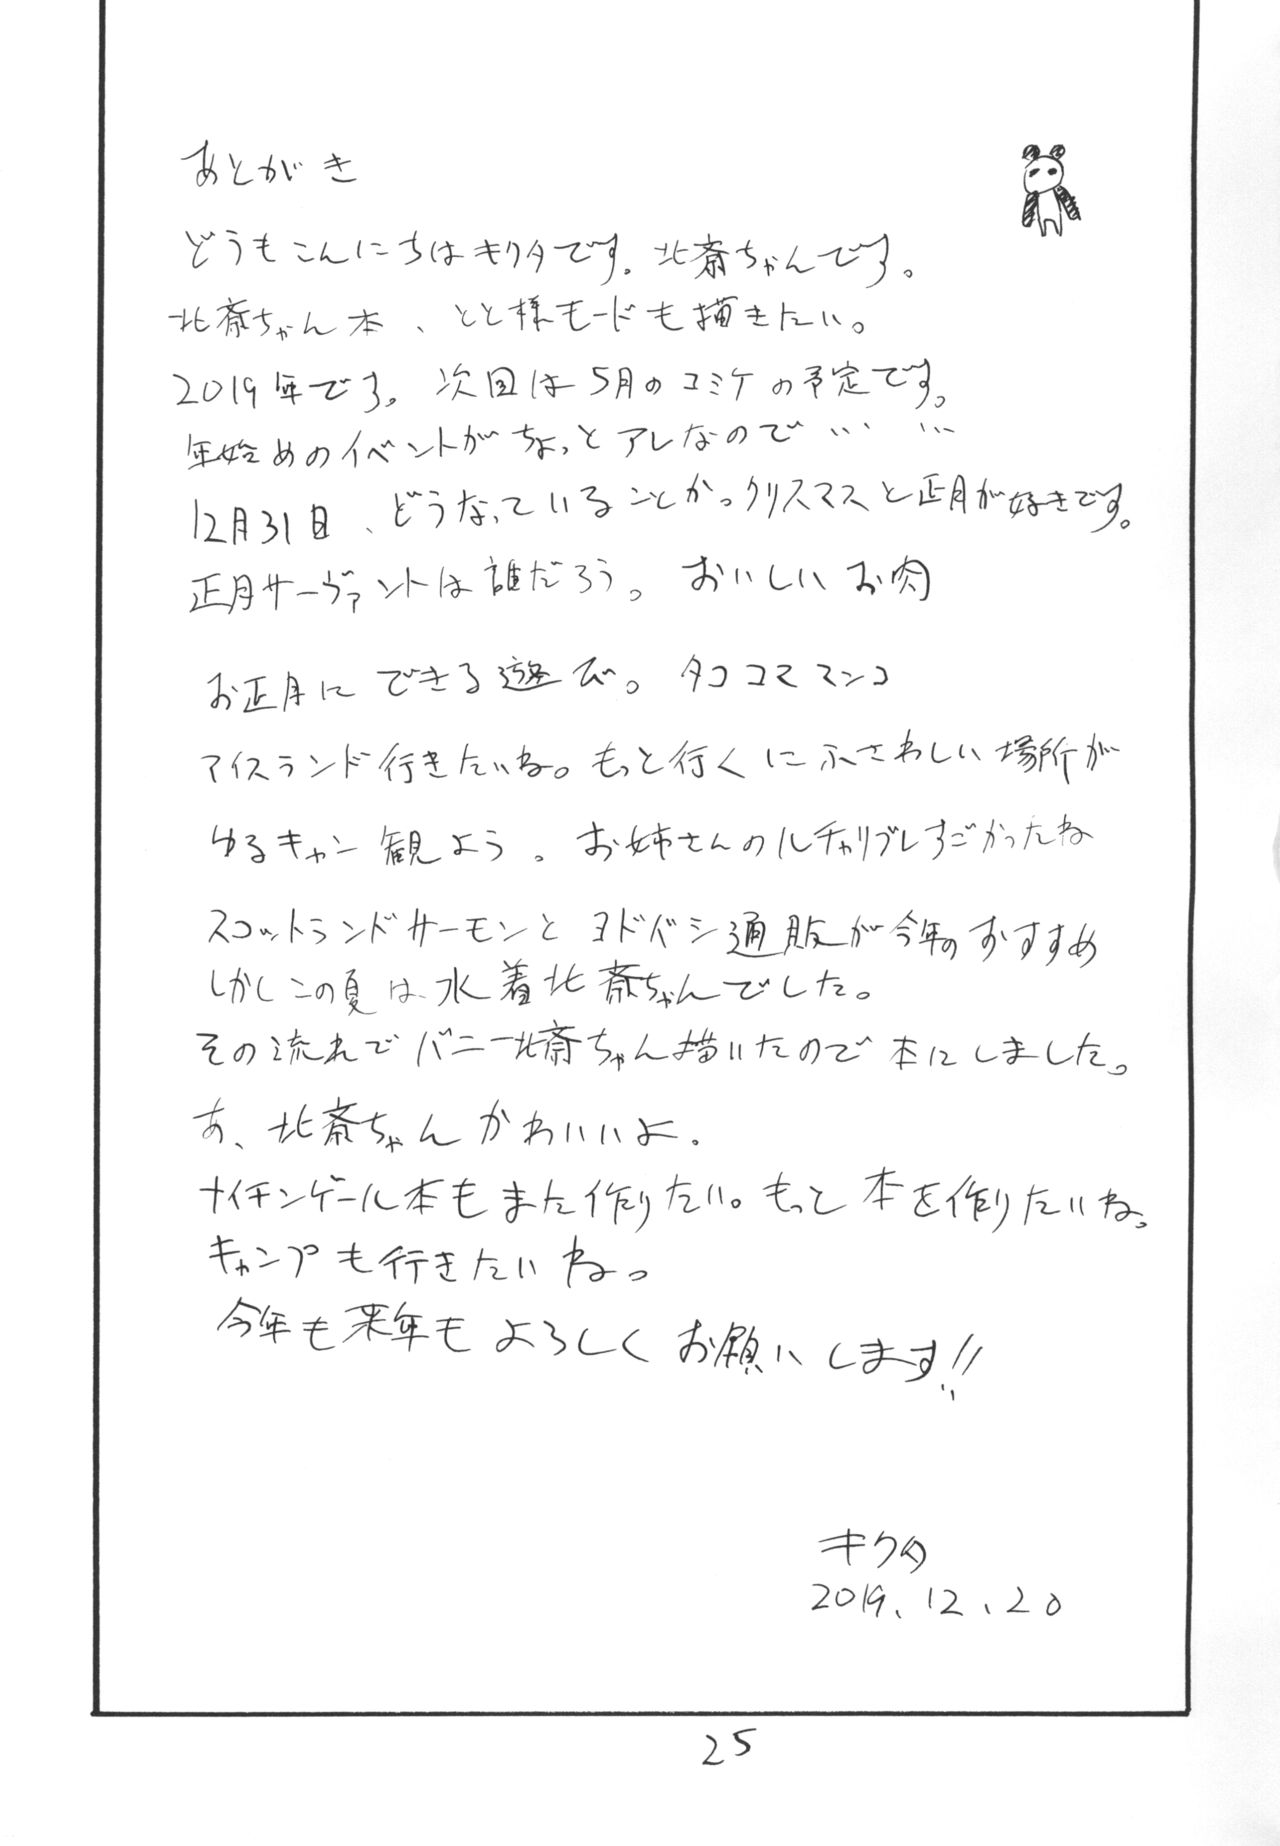 あとがき
どうもこんにちはキクタです。北斎ちゃんです。
北斎ちゃん本、とと様モードも描きたい。
2019年です。次回は5月のコミケの予定です。
年始めのイベントがちょっとアレなので……
12月31日、どうなっていることかっクリスマスと正月が好きです。
正月サーヴァントは誰だろう。おいしいお肉
お正月にできる遊び。タココママンコ
アイスランド行きたいね。もっと行くにふさわしい場所が
ゆるキャン観よう。お姉さんのルチャリブレすごかったね
スコットランドサーモンとヨドバシ通販が今年のおすすめ
しかしこの夏は、水着北斎ちゃんでした。
その流れでバニー北斎ちゃん描いたので本にしました。
あ、北斎ちゃんかわいいよ。
ナイチンゲール本もまた作りたい。もっと本を作りたいね。
キャンプも行きたいね。
今年も来年もよろしくお願いします!!
キクタ
2019.12.20
25